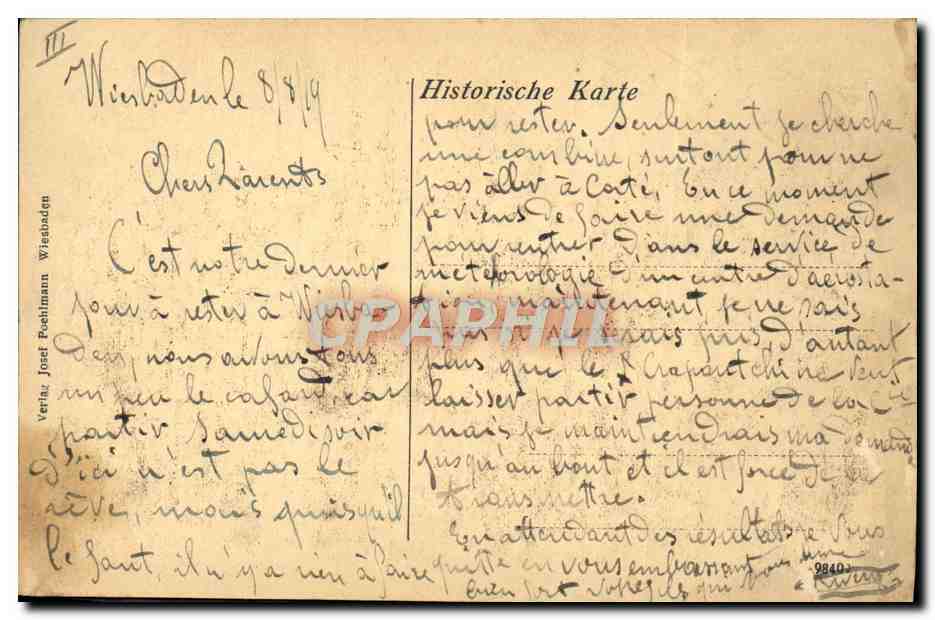 III
Wiesbaden le 8/8/19
Historische Karte
Verlag Josef Poehlmann Wiesbaden
Chers Parents
C'est notre dernier
jour à rester à Wiesba-
den, nous avons tous
un peu le cafard, car
partir samedi soir
d'ici n'est pas le
rêve, mais puisqu'il
le faut, il n'y a rien à faire
pour rester. Seulement je cherche
une combine, surtout pour ne
pas aller à Corté. En ce moment
je viens de faire une demande
pour entrer dans le service de
météorologie d'un centre d'aérosta-
tion, maintenant je ne sais
pas si je serais pris, d'autant
plus que le ne veut
laisser partir personne de la Cie
mais je maintiendrais ma demande
jusqu'au bout et il est forcé de la
transmettre.
En attendant des résultats je vous
quitte en vous embrassant
bien fort votre fils qui vous aime
9840
CPAPHIL